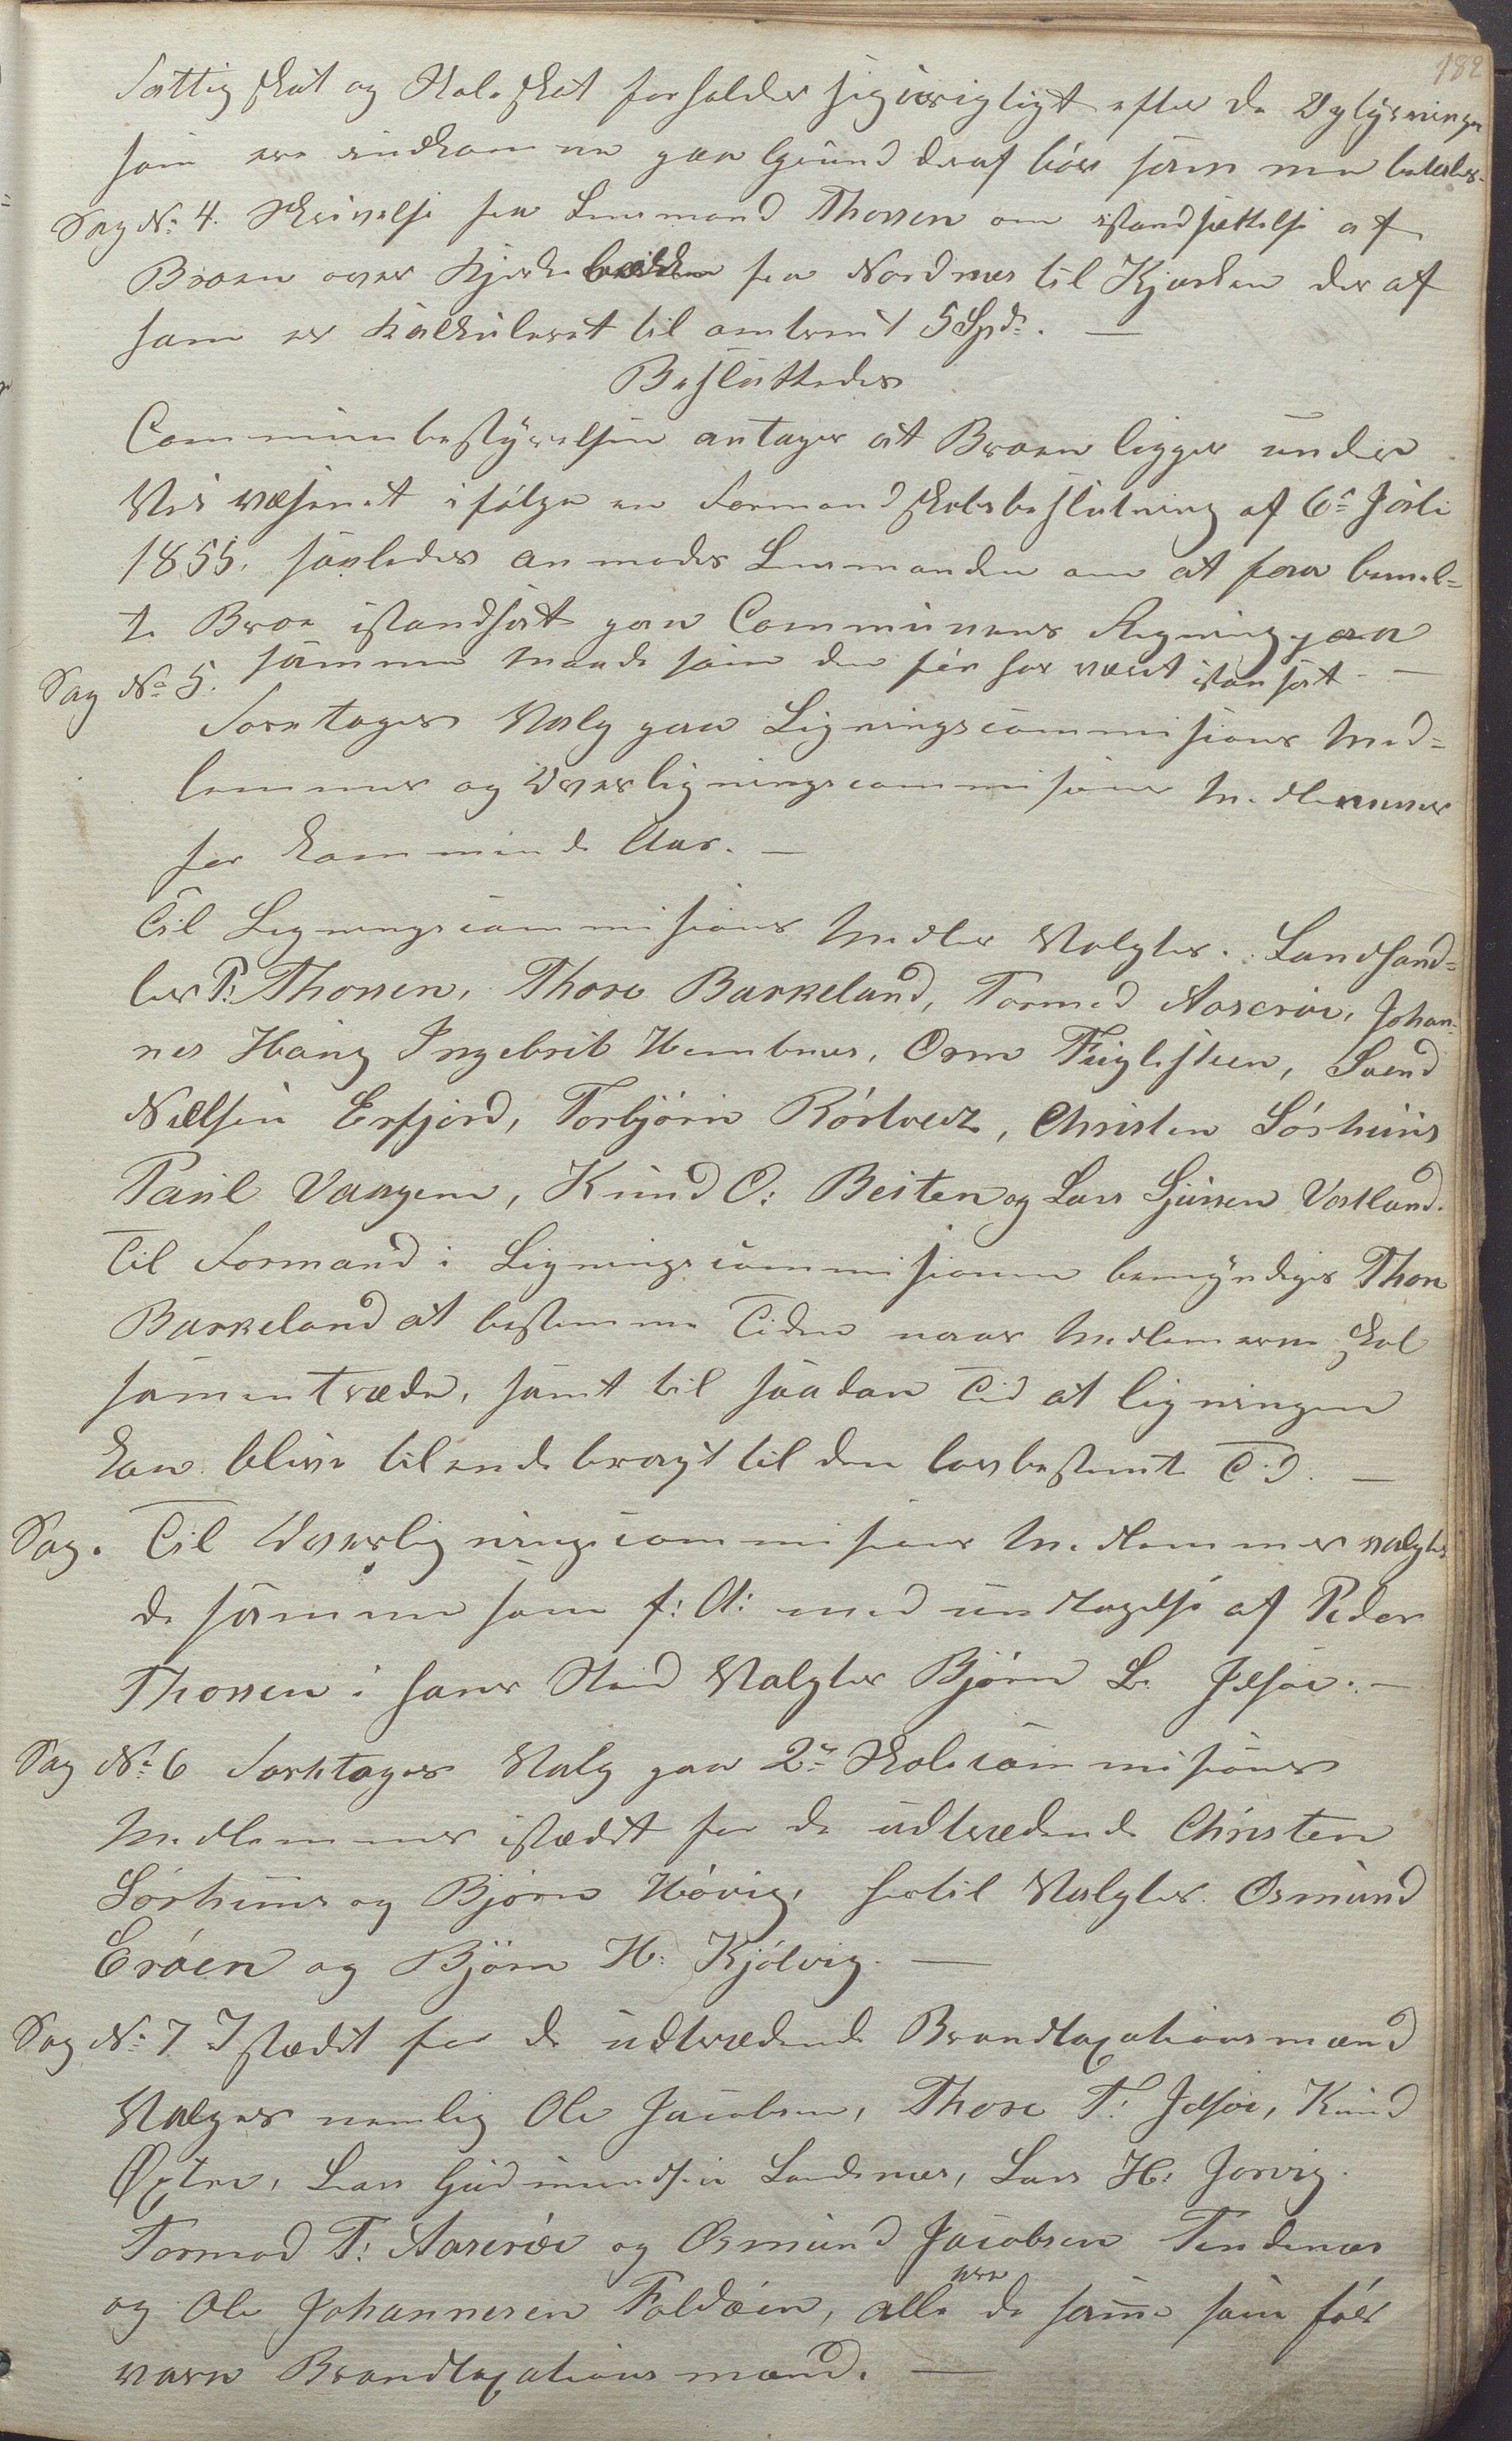 182
Fattigskat og Skoleskat forholder sig urigtigt efter de Oplysninger
som ere indkomne paa Grund deraf bør samme betales.
Sag No 4. Skrivelse fra Lensmand Thorsen om istandsættelse af
Broen over Kjerke fra Nordnes til Kjerken der af
ham er kalkuleret til omtrent 5 Spd. —
Besluttedes
Communbestyrelsen antager at Broen ligger under
Veivæsenet ifølge en Formandskabsbeslutning af 6te Juli
1855, saaledes anmodes Lensmanden om at faae bemel-
te Broe istandsat paa Communens Regning paa
samme Maade som den før har været istansat. —
Sag No 5.
Foretages Valg paa Ligningscommisions Med-
lemmer og Overligningscommisions Medlemmer
for kommende Aar. —
Til Ligningscommisions Medler Valgtes. Landhand-
ler P: Thorsen, Thore Barkeland, Tormod Aaserøe, Johan-
nes Haug Ingebrit Hembnes, Orm Fuglesteen, Svend
Nielsen Erfjord, Torbjørn Rørtveit, Christen Sørhuus
Paul Vaagene, Knud O: Beiten og Lars Sjursen Vastland.
Til Formand i Ligningscommisionen bemyndiges Thore
Barkeland at bestemme Tiden naar Medlemerne skal
samentræde, samt til saadan Tid at ligningen
kan blive tilendebragt til den lovbestemte Tid. —
Sag. Til Overligningscommisions Medlemmer valgtes
de samme som f: A: med undtagelse af Peder
Thorsen i hans Sted Valgtes Bjørn L. Jelsøe. —
Sag No 6 Foretages Valg paa 2de Skolecommisions
Medlemmer istædet for de udtrædende Christen
Sørhuus og Bjørn Høvig, hertil Valgtes Osmund
Erøen og Bjørn H: Kjølvig. —
Sag No 7 Istædet for de udtrædende Brandtaxationsmænd
Vælges nemlig Ole Jacobsen, Thore T. Jelsøe, Knud
Øxtre, Lars Gudmundsen Landsnes, Lars H: Jorvig.
Tormod T: Aaserøe og Osmund Jacobsen Tindenes
og Ole Johannesen Foldøen, alle ere de samme som før
vare Brandtaxationsmænd. —